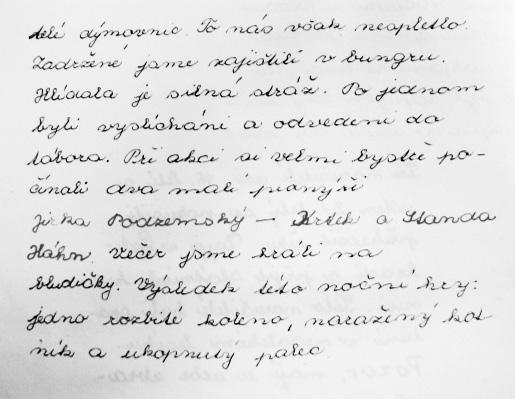 telé dýmovnic. To nás však neapletlo.
Zadržené jsme zajistili v bungru.
Hlídala je silná stráž. Po jednom
byli vyslícháni a odvedeni do
tábora. Při akci si velmi bystře po-
čínali dva malí pionýři
Jirka Podzemský - Krtek a Standa
Háhn. Večer jsme hráli na
bludičky. Výsledek této noční hry:
jedno rozbité koleno, naražený kot
ník a ukopnutý palec.